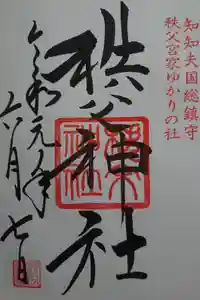 知知夫国総鎮守
秩父宮家ゆかりの社
秩父神社
令和元年
六月七日